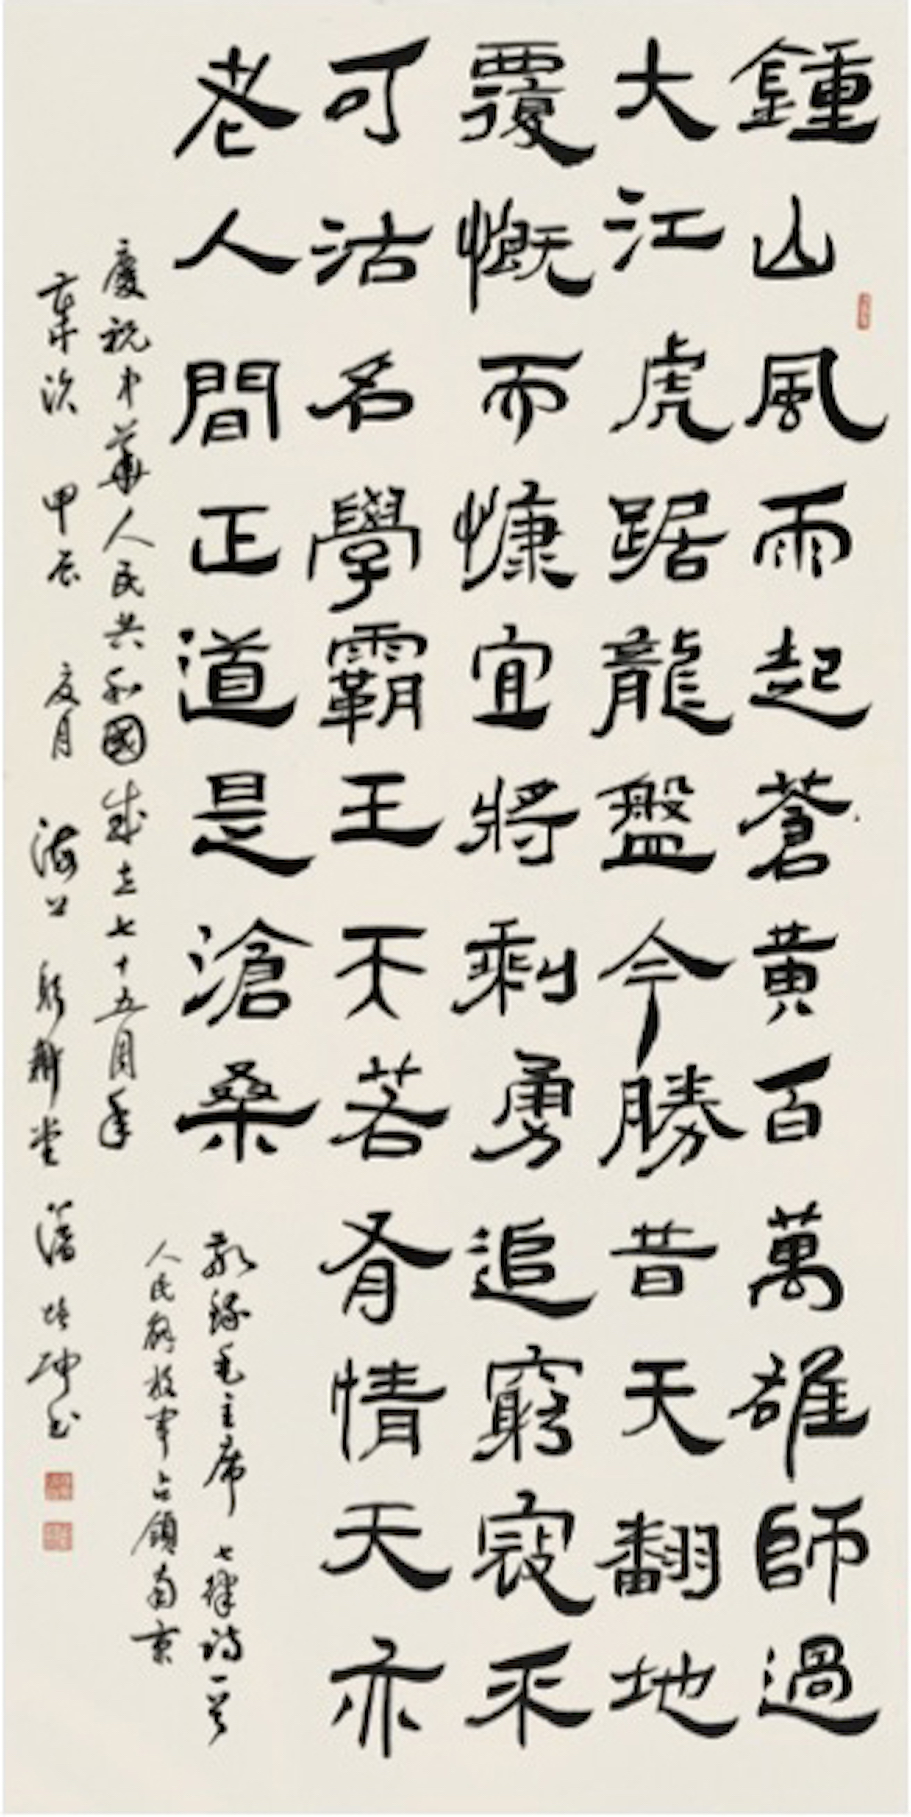 鍾山風雨起蒼黃百萬雄師過
大江虎踞龍盤今勝昔天翻地
覆慨而慷宜將剩勇追窮寇不
可沽名學霸王天若有情天亦
老人間正道是滄桑
敬録毛主席七律詩一首
人民解放軍占領南京
慶祝中華人民共和國成立七十五周年
歲次甲辰夏月海上堂潘培坤书